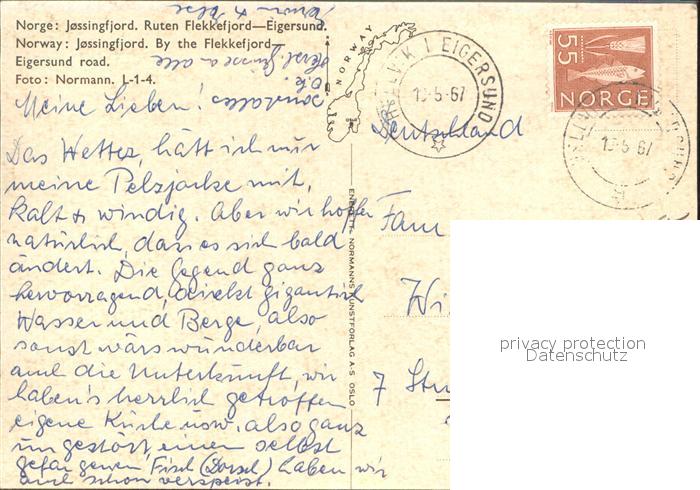 Norge: Jøssingfjord. Ruten Flekkefjord—Eigersund.
Norway: Jøssingfjord. By the Flekkefjord—
Eigersund road.
Foto: Normann. L-1-4.
NORWAY
I EIGERSUND
13-5-67
55
NORGE
13-5-67
Deutschland
Meine Lieben!
Das Wetter, hätt ich nur
meine Pelzjacke mit,
kalt & windig. Aber wir hoffen
natürlich, dass es sich bald
ändert. Die Gegend ganz
hervorragend, direkt gigantisch
Wasser und Berge, also
sonst wärs wunderbar
auch die Unterkunft, wir
haben's herrlich getroffen
eigene Küche usw. also ganz
ungestört, einen selbst
gefangenen Fisch (Dorsch) haben wir
auch schon verspeist.
alles
o.k.
Herzl. Grüsse an alle
& Ilse
ENERETT: NORMANNS KUNSTFORLAG A/S OSLO
Fam
Wi
7 Stu
privacy protection
Datenschutz